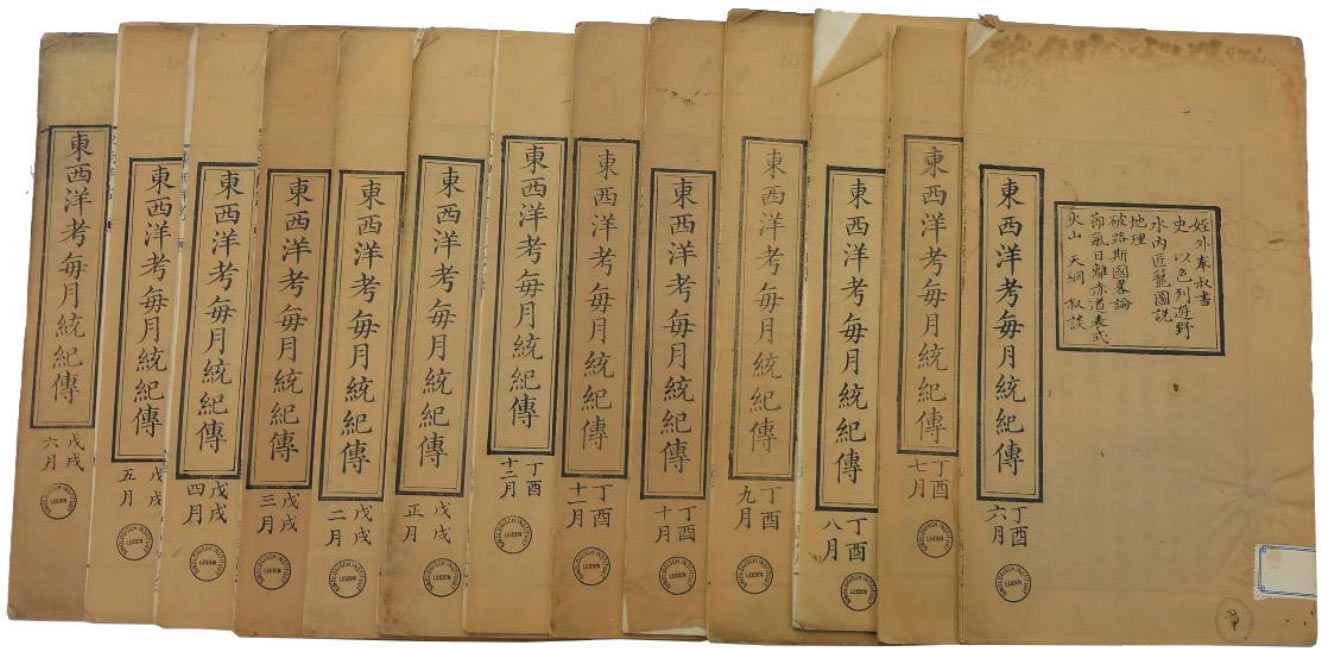 姪外奉叔書
史 以色列遊野
水內匠籠圖說
地理
破路斯國畧論
節氣日離赤道表式
火山 天綱 叙談
東西洋考每月統紀傳
丁酉
六月
SINOLOGISCH INSTITUUT
LEIDEN
東西洋考每月統紀傳
丁酉
七月
SINOLOGISCH INSTITUUT
LEIDEN
東西洋考每月統紀傳
丁酉
八月
SINOLOGISCH INSTITUUT
LEIDEN
東西洋考每月統紀傳
丁酉
九月
SINOLOGISCH INSTITUUT
LEIDEN
東西洋考每月統紀傳
丁酉
十月
SINOLOGISCH INSTITUUT
LEIDEN
東西洋考每月統紀傳
丁酉
十一月
SINOLOGISCH INSTITUUT
LEIDEN
東西洋考每月統紀傳
丁酉
十二月
SINOLOGISCH INSTITUUT
LEIDEN
東西洋考每月統紀傳
戊戌
正月
SINOLOGISCH INSTITUUT
LEIDEN
東西洋考每月統紀傳
戊戌
二月
SINOLOGISCH INSTITUUT
LEIDEN
東西洋考每月統紀傳
戊戌
三月
SINOLOGISCH INSTITUUT
LEIDEN
東西洋考每月統紀傳
戊戌
四月
SINOLOGISCH INSTITUUT
LEIDEN
東西洋考每月統紀傳
戊戌
五月
SINOLOGISCH INSTITUUT
LEIDEN
東西洋考每月統紀傳
戊戌
六月
SINOLOGISCH INSTITUUT
LEIDEN